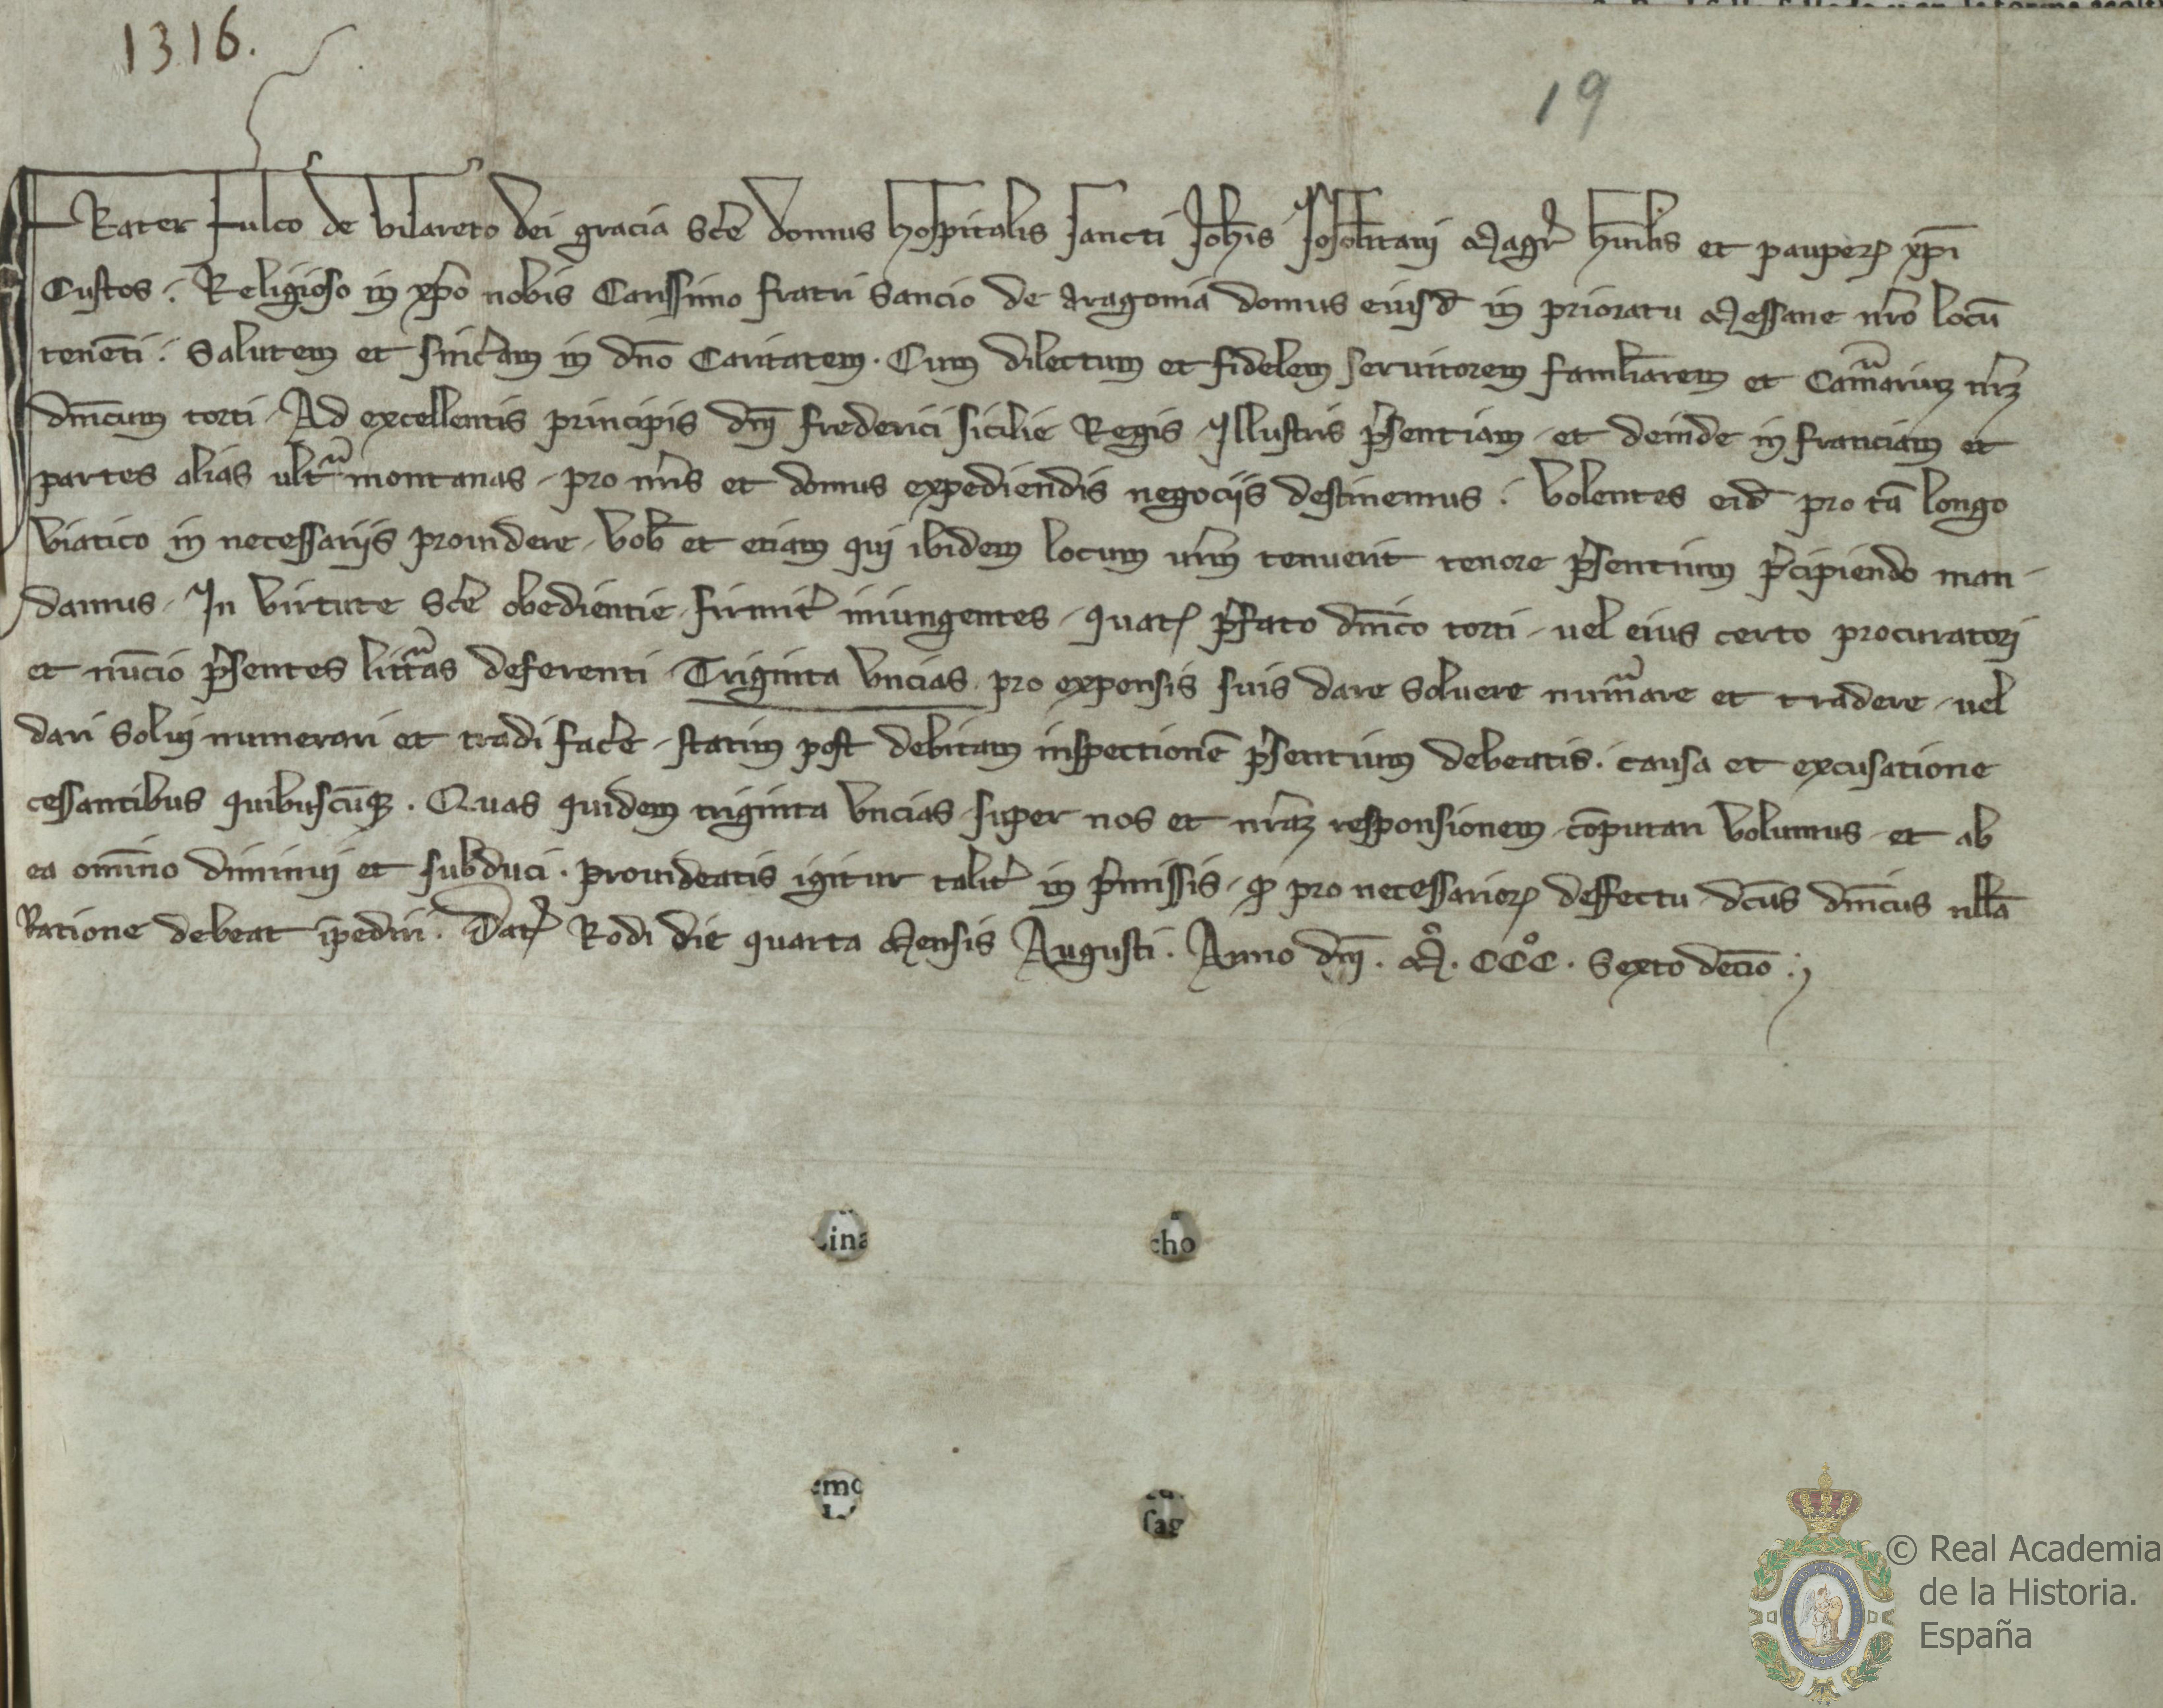 1316.
19
FRater Fulco de Vilareto dei gracia Sce̅ domus hospitalis sancti Joh̅is Jerosolitani Magr̅ hu̅ilis et pauperꝝ xp̅i
Custos . Religioso in xp̅o nobis Carissimo fratri Sancio de Aragonia domus eiusd̅ in prioratu Messane nr̅o locu̅
tene̅ti . Salutem et sinc̅am in dn̅o Caritatem . Cum dilectum et fidelem seruitorem familiarem et Camᵃarium nr̅m
dn̅icum torti . Ad excellentis principis dn̅i frederici sicilie Regis Illustris p̅sentiam et deinde in franciam et
partes alias ultᵃmontanas pro nr̅is et domus expediendis negociis destinemus . Volentes eid̅ pro ta̅ longo
viatico in necessariis prouidere vob̅ et etiam qui ibidem locum nr̅m tenuerit tenore p̅sentium p̅cipiendo man-
damus . In virtute Sce̅ obedientie firmit̅ iniungentes . quatꝭ p̅fato dn̅ico torti uel eius certo procuratori
et nu̅cio p̅sentes litt̅as deferenti Triginta vncias pro expensis suis dare soluere numᵃare et tradere uel
dari solui numerari et tradi fac̅e statim post debitam inspectione̅ p̅sentium debeatis . causa et excusatione
cessantibus quibuscu̅qꝫ . Quas quidem triginta vncias super nos et nr̅am responsionem co̅putari volumus et ab
ea omi̅no diminui et subduci . prouideatis igitur talit̅ in p̅missis ꝙ pro necessarioꝝ deffectu dc̅us dn̅icus nll̅a
Ratione debeat i̅pediri . Datꝭ Rodi die quarta Mensis Augusti . Anno dn̅i . M̊ . CCC̊ . Sexto decio̅ .
ina
cho
emo
sag
© Real Academia
de la Historia.
España